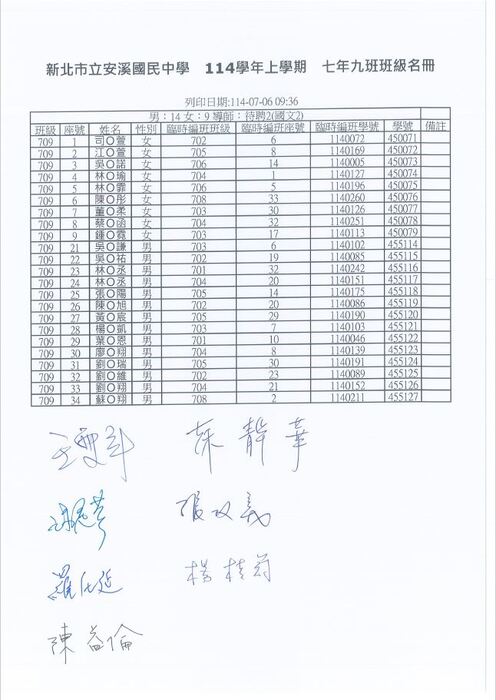 新北市立安溪國民中學 114學年上學期 七年九班班級名冊
列印日期:114-07-06 09:36
男:14 女:9 導師:待聘2(國文2)
班級 座號 姓名 性別 臨時編班班級 臨時編班座號 臨時編班學號 學號 備註
709 1 司〇萱 女 702 6 1140072 450071
709 2 江〇萱 女 705 8 1140169 450072
709 3 吳〇諾 女 706 14 1140005 450073
709 4 林〇瑜 女 704 1 1140127 450074
709 5 林〇霏 女 706 5 1140196 450075
709 6 陳〇彤 女 708 33 1140260 450076
709 7 董〇柔 女 703 30 1140126 450077
709 8 蔡〇函 女 704 32 1140251 450078
709 9 鍾〇霓 女 703 17 1140113 450079
709 21 吳〇謙 男 703 6 1140102 455114
709 22 吳〇祐 男 702 19 1140085 455115
709 23 林〇丞 男 701 32 1140242 455116
709 24 林〇丞 男 704 20 1140151 455117
709 25 張〇陽 男 705 14 1140175 455118
709 26 陳〇旭 男 702 20 1140086 455119
709 27 黃〇宸 男 705 29 1140190 455120
709 28 楊〇凱 男 703 7 1140103 455121
709 29 葉〇恩 男 701 10 1140046 455122
709 30 廖〇翔 男 704 8 1140139 455123
709 31 劉〇瑞 男 705 30 1140191 455124
709 32 劉〇維 男 702 23 1140089 455125
709 33 劉〇翔 男 704 21 1140152 455126
709 34 蘇〇翔 男 708 2 1140211 455127
張文義
楊桂
陳益倫